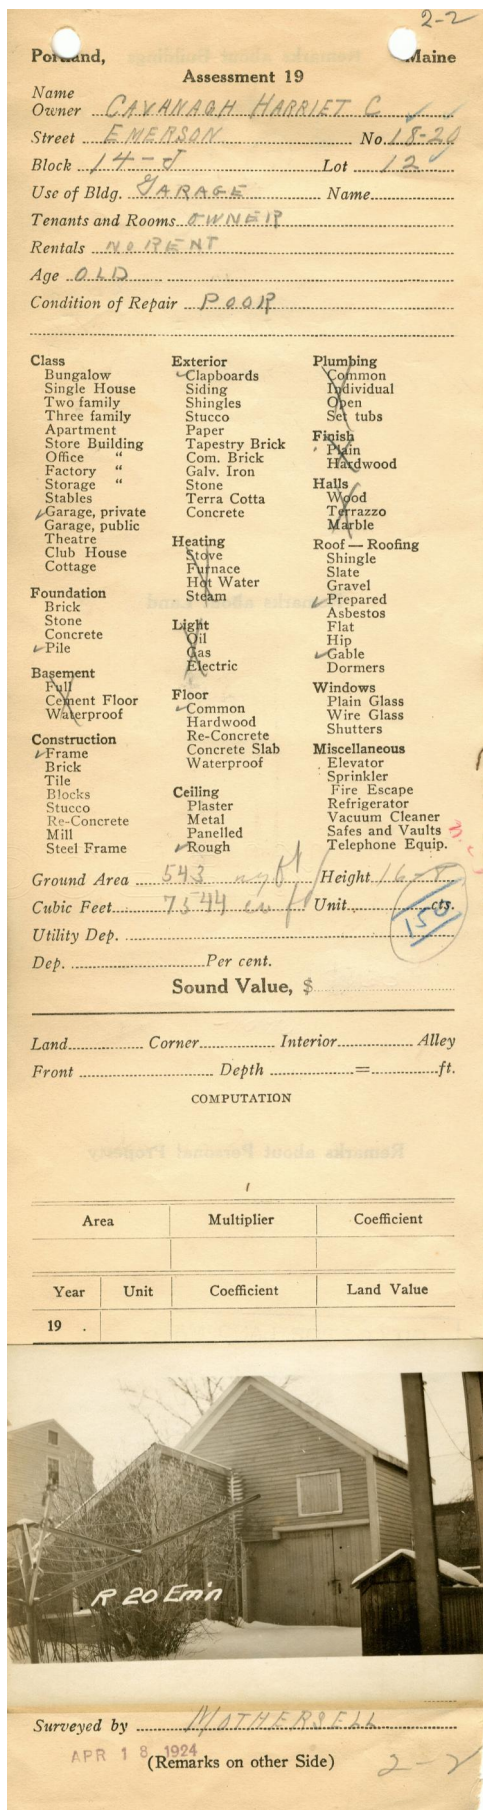 2-2
Portland, Maine
Assessment 19
Name
Owner CAVANAGH HARRIET C
Street EMERSON No. 18-20
Block 14-J Lot 12
Use of Bldg. GARAGE Name
Tenants and Rooms OWNER
Rentals NO RENT
Age OLD
Condition of Repair POOR
Class
Bungalow
Single House
Two family
Three family
Apartment
Store Building
Office "
Factory "
Storage "
Stables
Garage, private
Garage, public
Theatre
Club House
Cottage
Foundation
Brick
Stone
Concrete
Pile
Basement
Full
Cement Floor
Waterproof
Construction
Frame
Brick
Tile
Blocks
Stucco
Re-Concrete
Mill
Steel Frame
Exterior
Clapboards
Siding
Shingles
Stucco
Paper
Tapestry Brick
Com. Brick
Galv. Iron
Stone
Terra Cotta
Concrete
Heating
Stove
Furnace
Hot Water
Steam
Light
Oil
Gas
Electric
Floor
Common
Hardwood
Re-Concrete
Concrete Slab
Waterproof
Ceiling
Plaster
Metal
Panelled
Rough
Plumbing
Common
Individual
Open
Set tubs
Finish
Plain
Hardwood
Halls
Wood
Terrazzo
Marble
Roof — Roofing
Shingle
Slate
Gravel
Prepared
Asbestos
Flat
Hip
Gable
Dormers
Windows
Plain Glass
Wire Glass
Shutters
Miscellaneous
Elevator
Sprinkler
Fire Escape
Refrigerator
Vacuum Cleaner
Safes and Vaults
Telephone Equip.
Ground Area 543 sq ft Height 16-8
Cubic Feet 7544 cu ft Unit cts.
150
Utility Dep.
Dep. Per cent.
Sound Value, $
Land Corner Interior Alley
Front Depth = ft.
COMPUTATION
Area Multiplier Coefficient
Year Unit Coefficient Land Value
19 .
R 20 Em'n
Surveyed by MOTHERSELL
APR 18 1924
(Remarks on other Side)
2-2